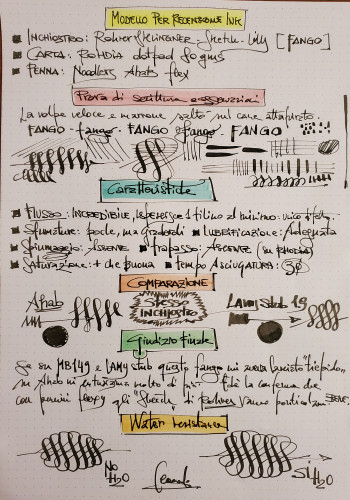 MODELLO PER RECENSIONE INK
INCHIOSTRO: ROHRER & KLINGNER - Sketch INK [FANGO]
CARTA: RHODIA dotted 80 gms
PENNA: Noodlers Ahab flex
Prova di scrittura e osservazioni
La volpe veloce e marrone saltò sul cane
FANGO - fango - FANGO - fango. FANGO
Caratteristiche
FLUSSO: INCREDIBILE, 1 filino al minimo:
Sfumature: poche, ma LUBRIFICAZIONE: Adeguata
Spiumaggio: ASSENTE Trapasso: ASSENTE (su RHODIA)
Saturazione: + che buona tempo ASCIUGATURA: 30
COMPARAZIONE
Ahab STESSO INCHIOSTRO LAMY Stub 1.9
Giudizio finale
Se su MB149 e LAMY stub questo fango mi aveva lasciato "tiepido",
su Ahab mi entusiasma molto di più. la conferma che
con pennini flessy gli "Sketch" di Rohrer vanno BENE
Water resistance
No H2O
Sì H2O